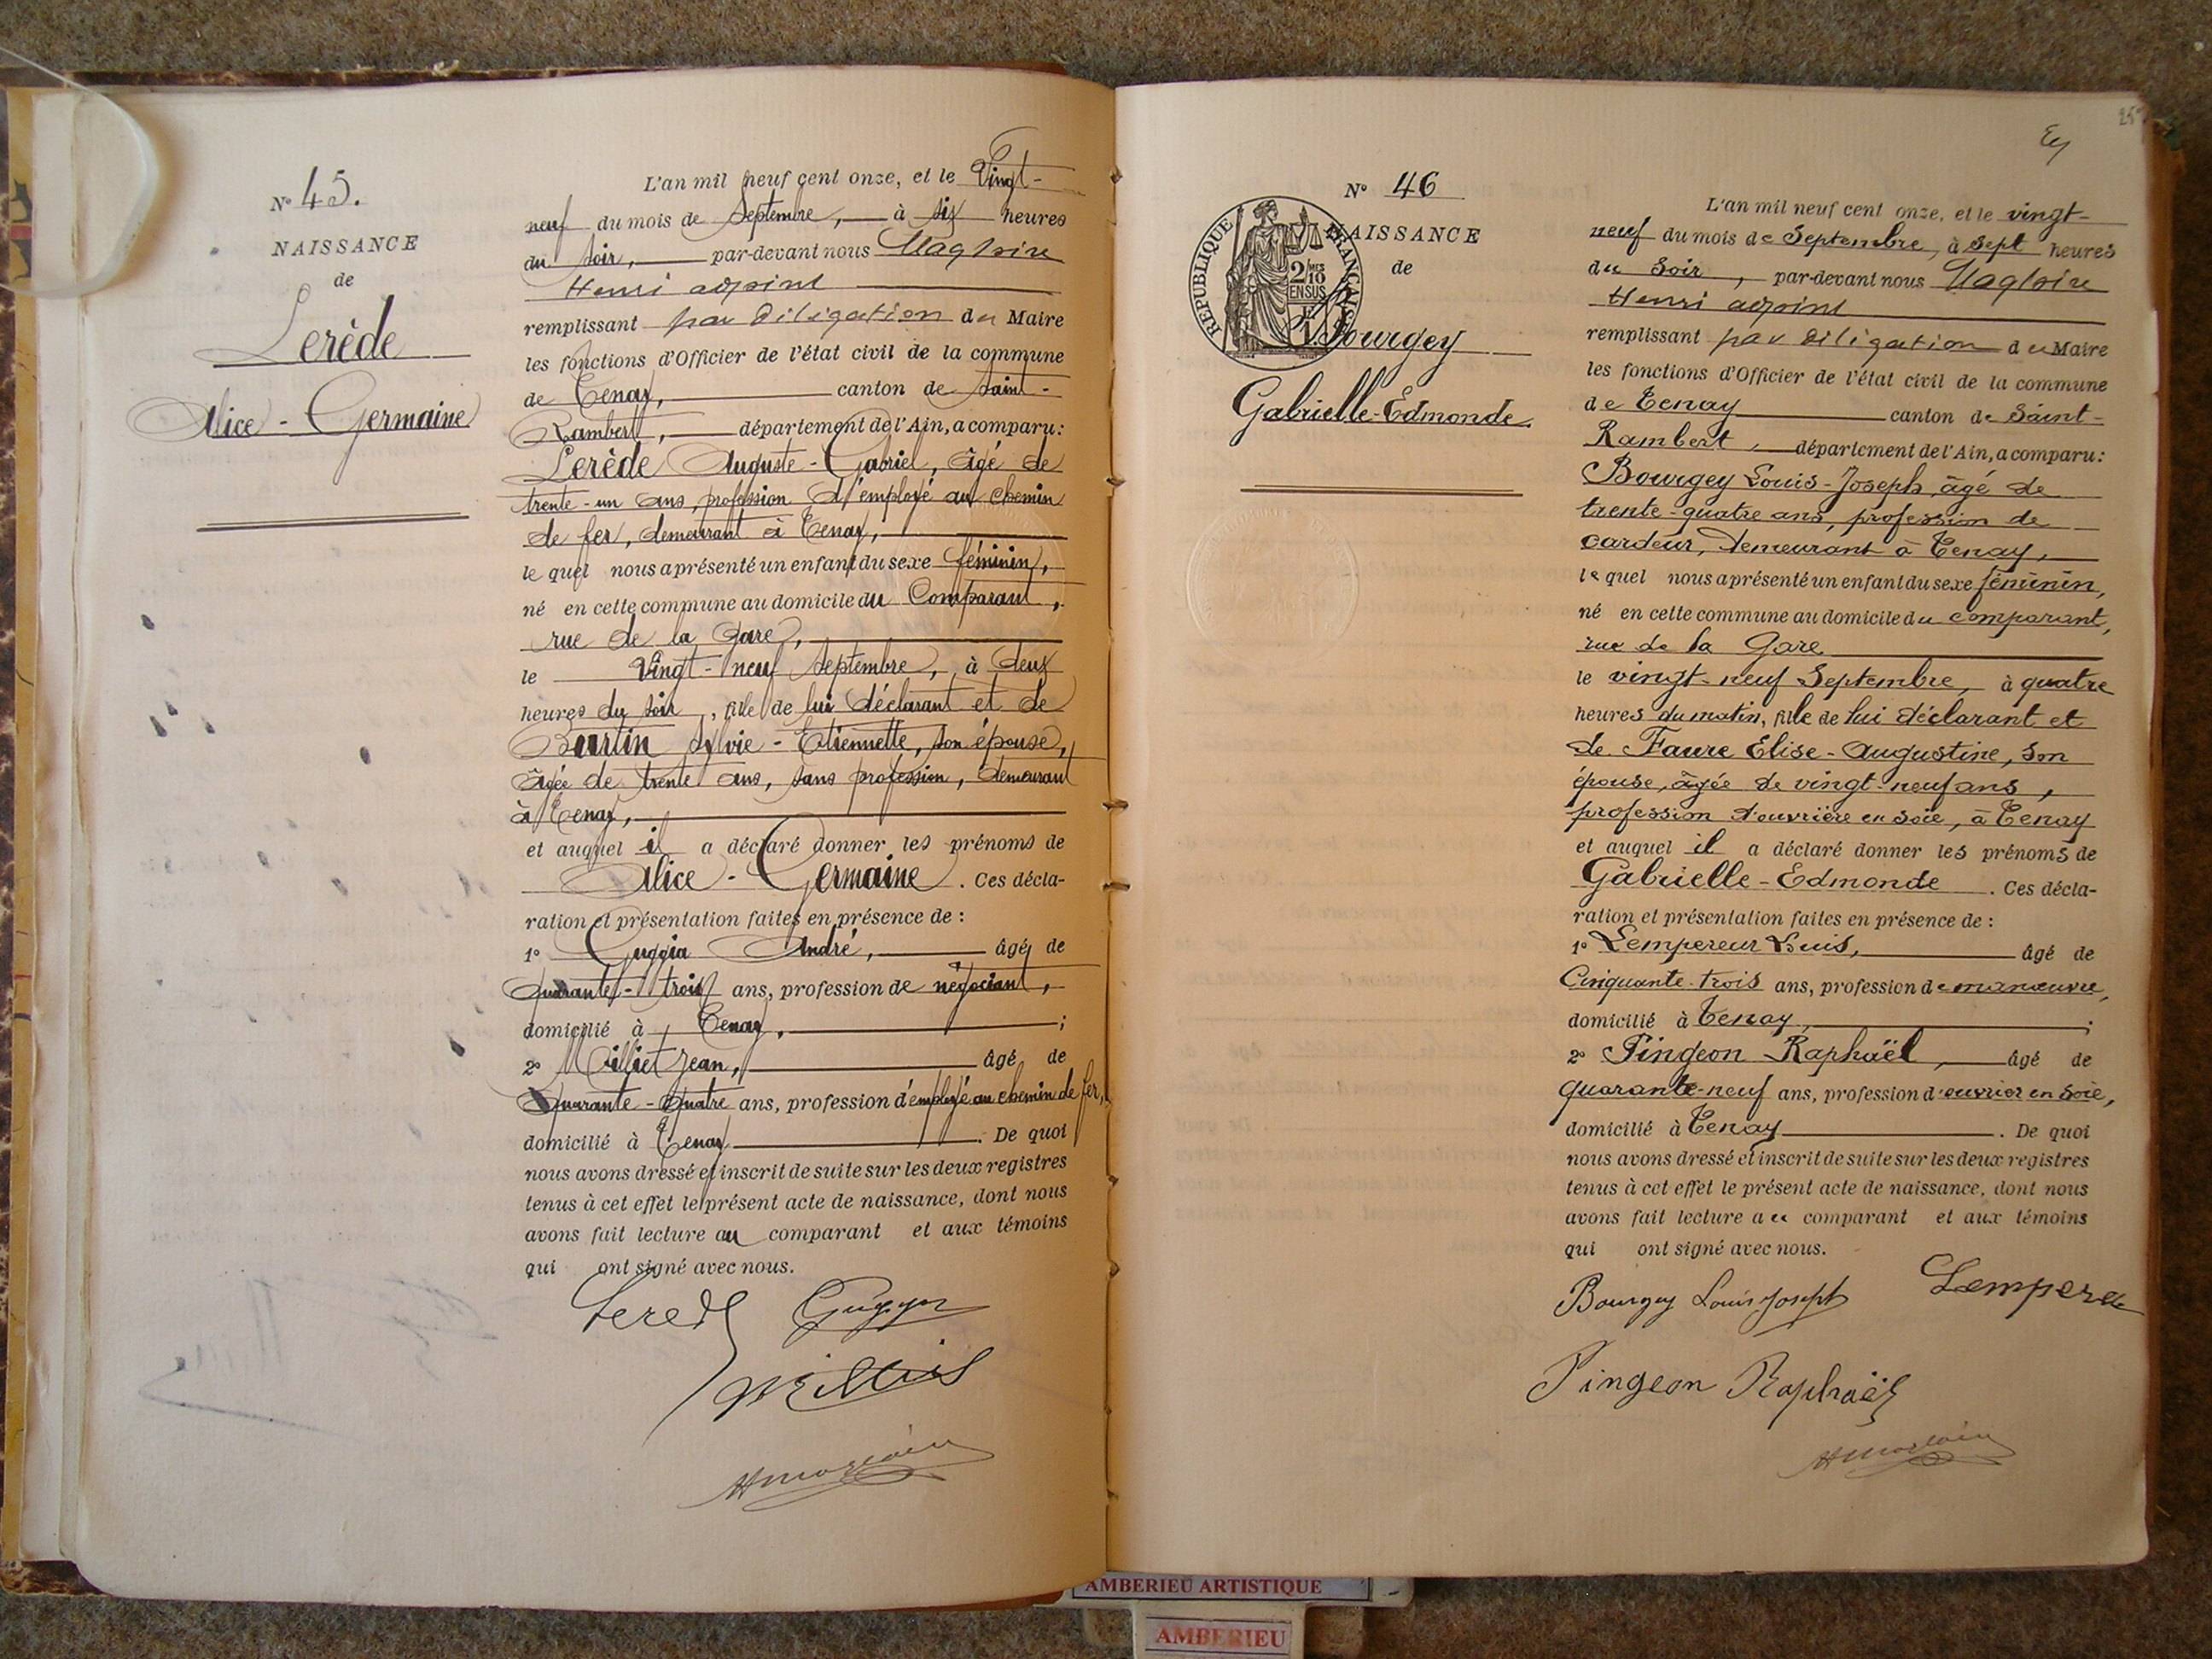 Nº 45.
NAISSANCE
de
Lerède
Alice - Germaine
L'an mil neuf cent onze, et le Vingt-
neuf du mois de Septembre, à six heures
du soir, par-devant nous Magloire
Henri adjoint
remplissant par déligation du Maire
les fonctions d'Officier de l'état civil de la commune
de Tenay, canton de Saint-
Rambert, département de l'Ain, a comparu:
Lerède Auguste-Gabriel, âgé de
trente-un ans, profession d'employé au chemin
de fer, demeurant à Tenay,
le quel nous a présenté un enfant du sexe féminin,
né en cette commune au domicile du Comparant,
rue de la Gare,
le Vingt-neuf Septembre, à deux
heures du soir, fille de lui déclarant et de
Sylvie-Etiennette, son épouse,
âgée de trente ans, sans profession, demeurant
à Tenay,
et auquel il a déclaré donner les prénoms de
Alice-Germaine. Ces décla-
ration et présentation faites en présence de :
1º Guggia André, âgé de
Quarante-trois ans, profession de négociant,
domicilié à Tenay, ;
2º Milliet Jean, âgé de
Quarante-quatre ans, profession d'employé au chemin de fer,
domicilié à Tenay. De quoi
nous avons dressé et inscrit de suite sur les deux registres
tenus à cet effet le présent acte de naissance, dont nous
avons fait lecture au comparant et aux témoins
qui ont signé avec nous.
Lerède
Nº 46
NAISSANCE
de
REPUBLIQUE FRANÇAISE
2/10 EN SUS
Bourgey
Gabrielle-Edmonde
L'an mil neuf cent onze, et le vingt-
neuf du mois de Septembre, à sept heures
du soir, par-devant nous Magloire
Henri adjoint
remplissant par déligation du Maire
les fonctions d'Officier de l'état civil de la commune
de Tenay canton de Saint-
Rambert, département de l'Ain, a comparu:
Bourgey Louis-Joseph, âgé de
trente-quatre ans, profession de
cardeur, demeurant à Tenay,
le quel nous a présenté un enfant du sexe féminin,
né en cette commune au domicile du comparant,
rue de la Gare
le vingt-neuf Septembre, à quatre
heures du matin, fille de lui déclarant et
de Faure Elise-Augustine, son
épouse, âgée de vingt-neuf ans,
profession d'ouvrière en soie, à Tenay
et auquel il a déclaré donner les prénoms de
Gabrielle-Edmonde. Ces décla-
ration et présentation faites en présence de :
1º Lempereur Louis, âgé de
Cinquante-trois ans, profession de manœuvre,
domicilié à Tenay, ;
2º Pingeon Raphaël, âgé de
quarante-neuf ans, profession d'ouvrier en soie,
domicilié à Tenay. De quoi
nous avons dressé et inscrit de suite sur les deux registres
tenus à cet effet le présent acte de naissance, dont nous
avons fait lecture au comparant et aux témoins
qui ont signé avec nous.
Bourgey Louis Joseph
Pingeon Raphaël
AMBERIEU ARTISTIQUE
AMBERIEU